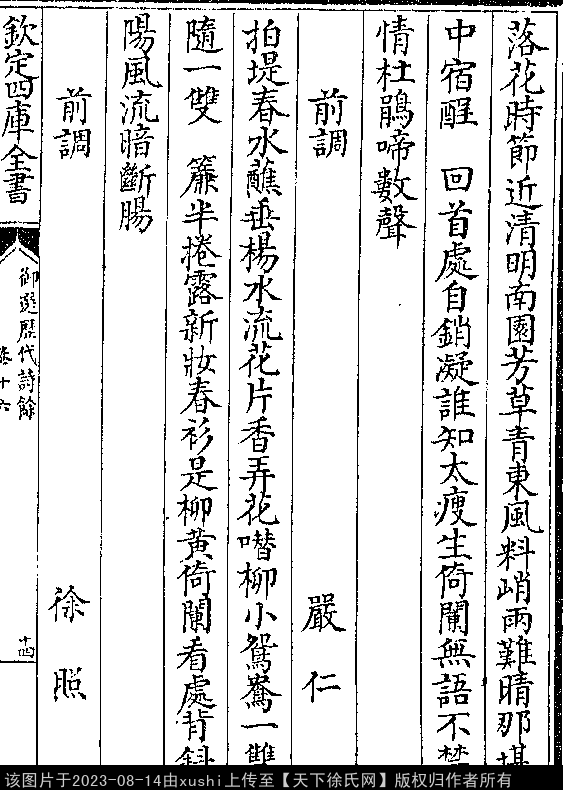 落花時節近清明南園芳草青東風料峭雨難晴那堪
中宿酲　回首處自銷凝誰知太瘦生倚闌無語不禁
情杜鵑啼數聲
前調　嚴仁
拍堤春水蘸垂楊水流花片香弄花噆柳小鴛鴦一雙
隨一雙　簾半捲露新妝春衫是柳黃倚闌看處背斜
陽風流暗斷腸
前調　徐照
欽定四庫全書
御選歷代詩餘
卷十六
十四
该图片于2023-08-14由xushi上传至【天下徐氏网】版权归作者所有